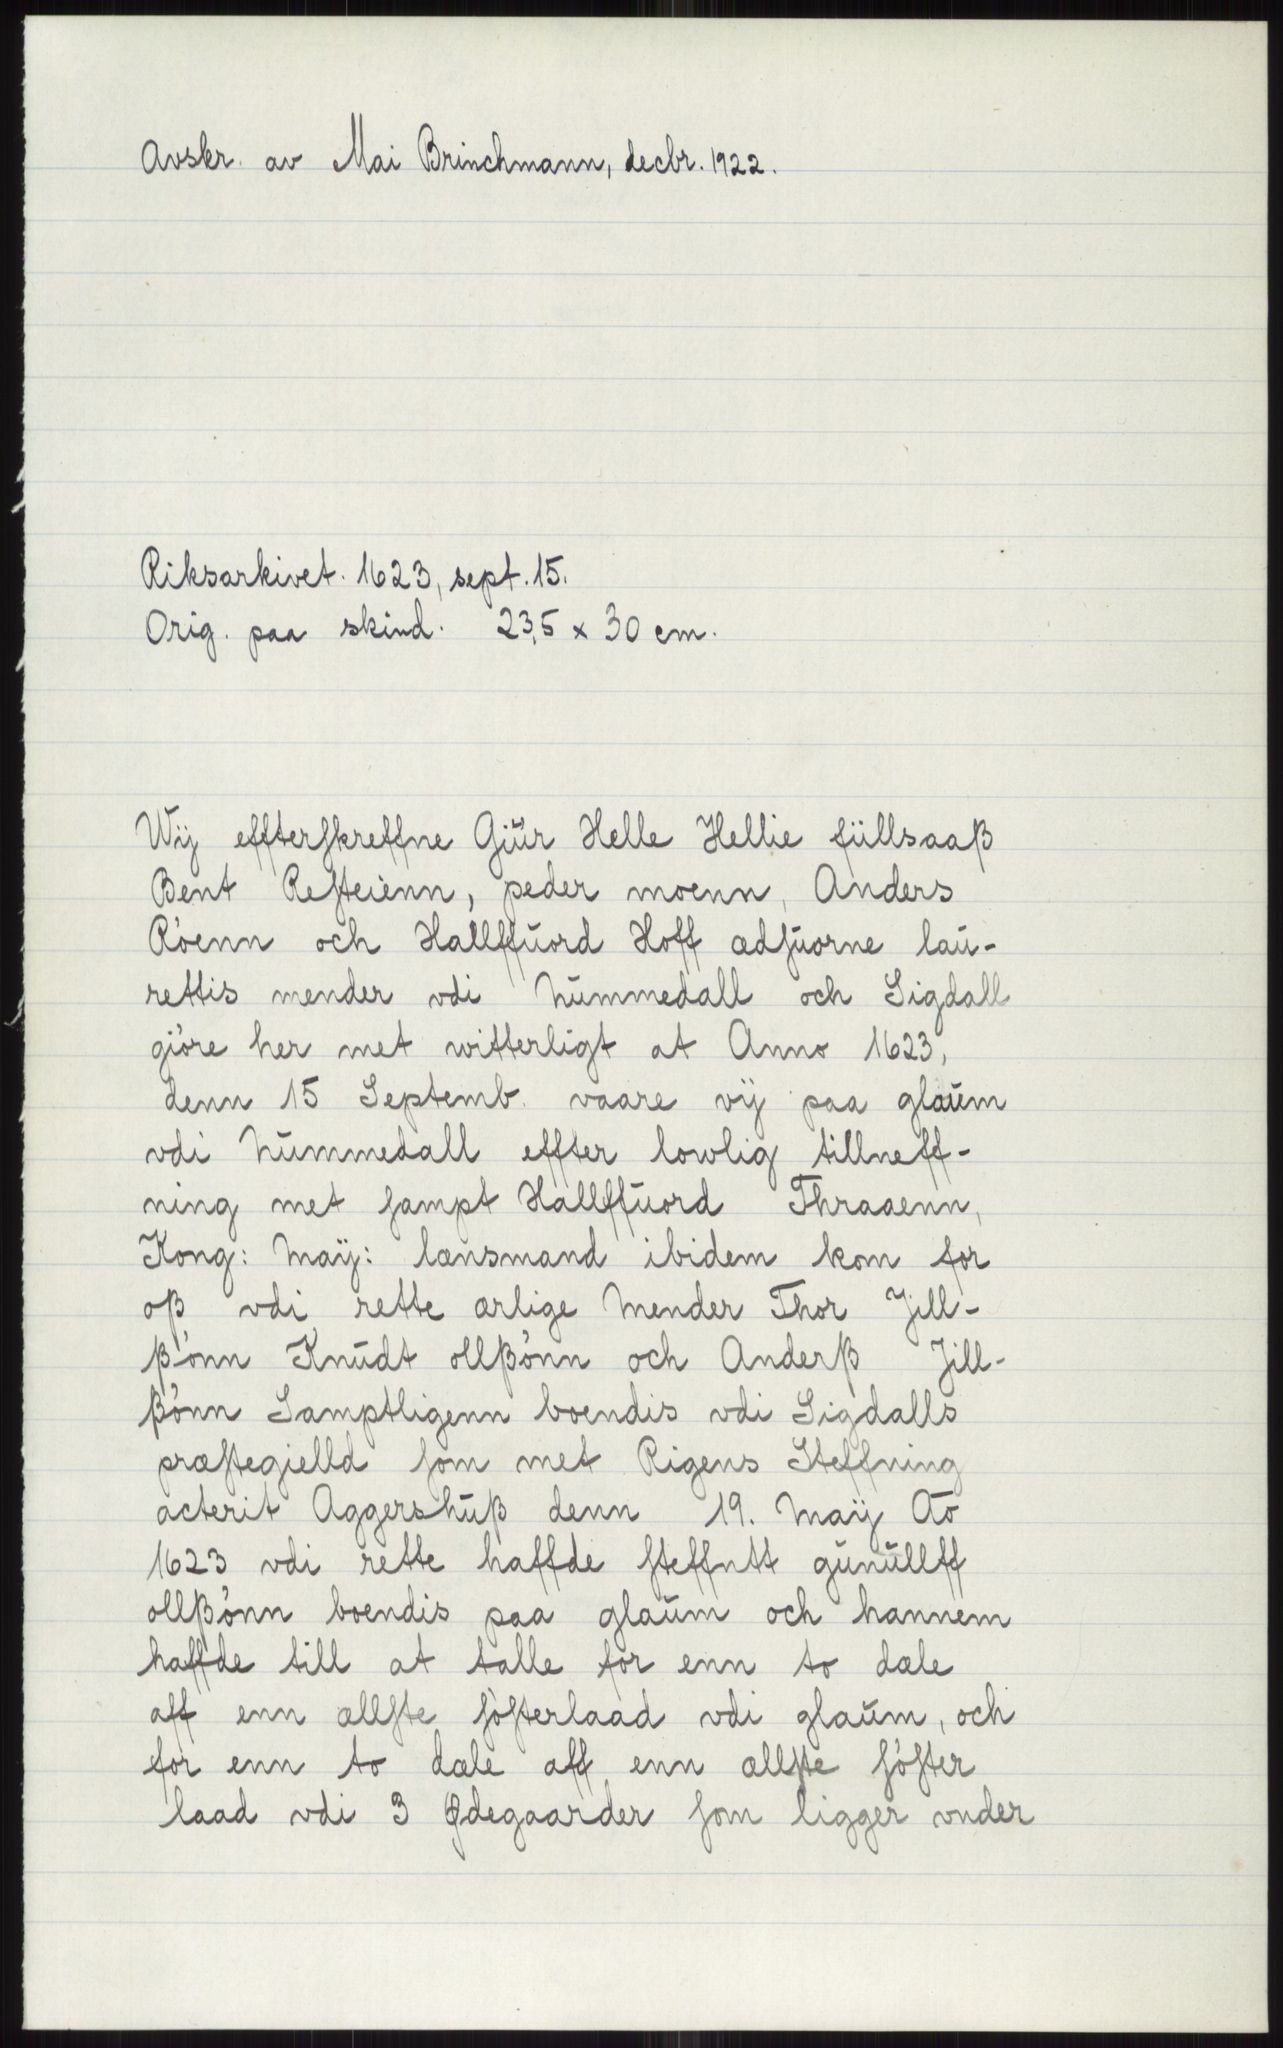 Avskr. av Mai Brinchmann, decbr. 1922.
Riksarkivet. 1623, sept. 15.
Orig. paa skind. 23,5 x 30 cm.
Wÿ effterſkreffne Giŭr Helle Hellie fŭllsaaß
Bent Reſteienn, peder moenn, Anders
Röenn och Hallffŭord Hoff ædſŭorne laŭ-
rettis mender vdi Nŭmmedall och Sigdall
giöre her met witterligt at Anno 1623,
denn 15 Septemb. vaare vÿ paa glaŭm
vdi Nŭmmedall effter lowlig tillneff-
ning met ſampt Hallffŭord Thraaenn,
Kong: Maÿ: lænsmand ibidem kom for
oß vdi rette ærlige Mender Thor Jill-
ßönn Knŭdt ollßönn och Anderß Jill-
ßönn Samptligenn boendis vdi Sigdalls
præſtegielld ſom met Rigens Steffning
acterit Aggershŭß denn 19. Maÿ Ao
1623 vdi rette haffde ſteffntt gŭnŭllff
ollßönn boendis paa glaŭm och hannem
haffde till at talle for enn to dæle
aff enn ællſte ſöſterlaad vdi glaŭm, och
for enn to dæle aff enn ællſte ſöſter
laad vdi 3 Ødegaarder ſom ligger vnder